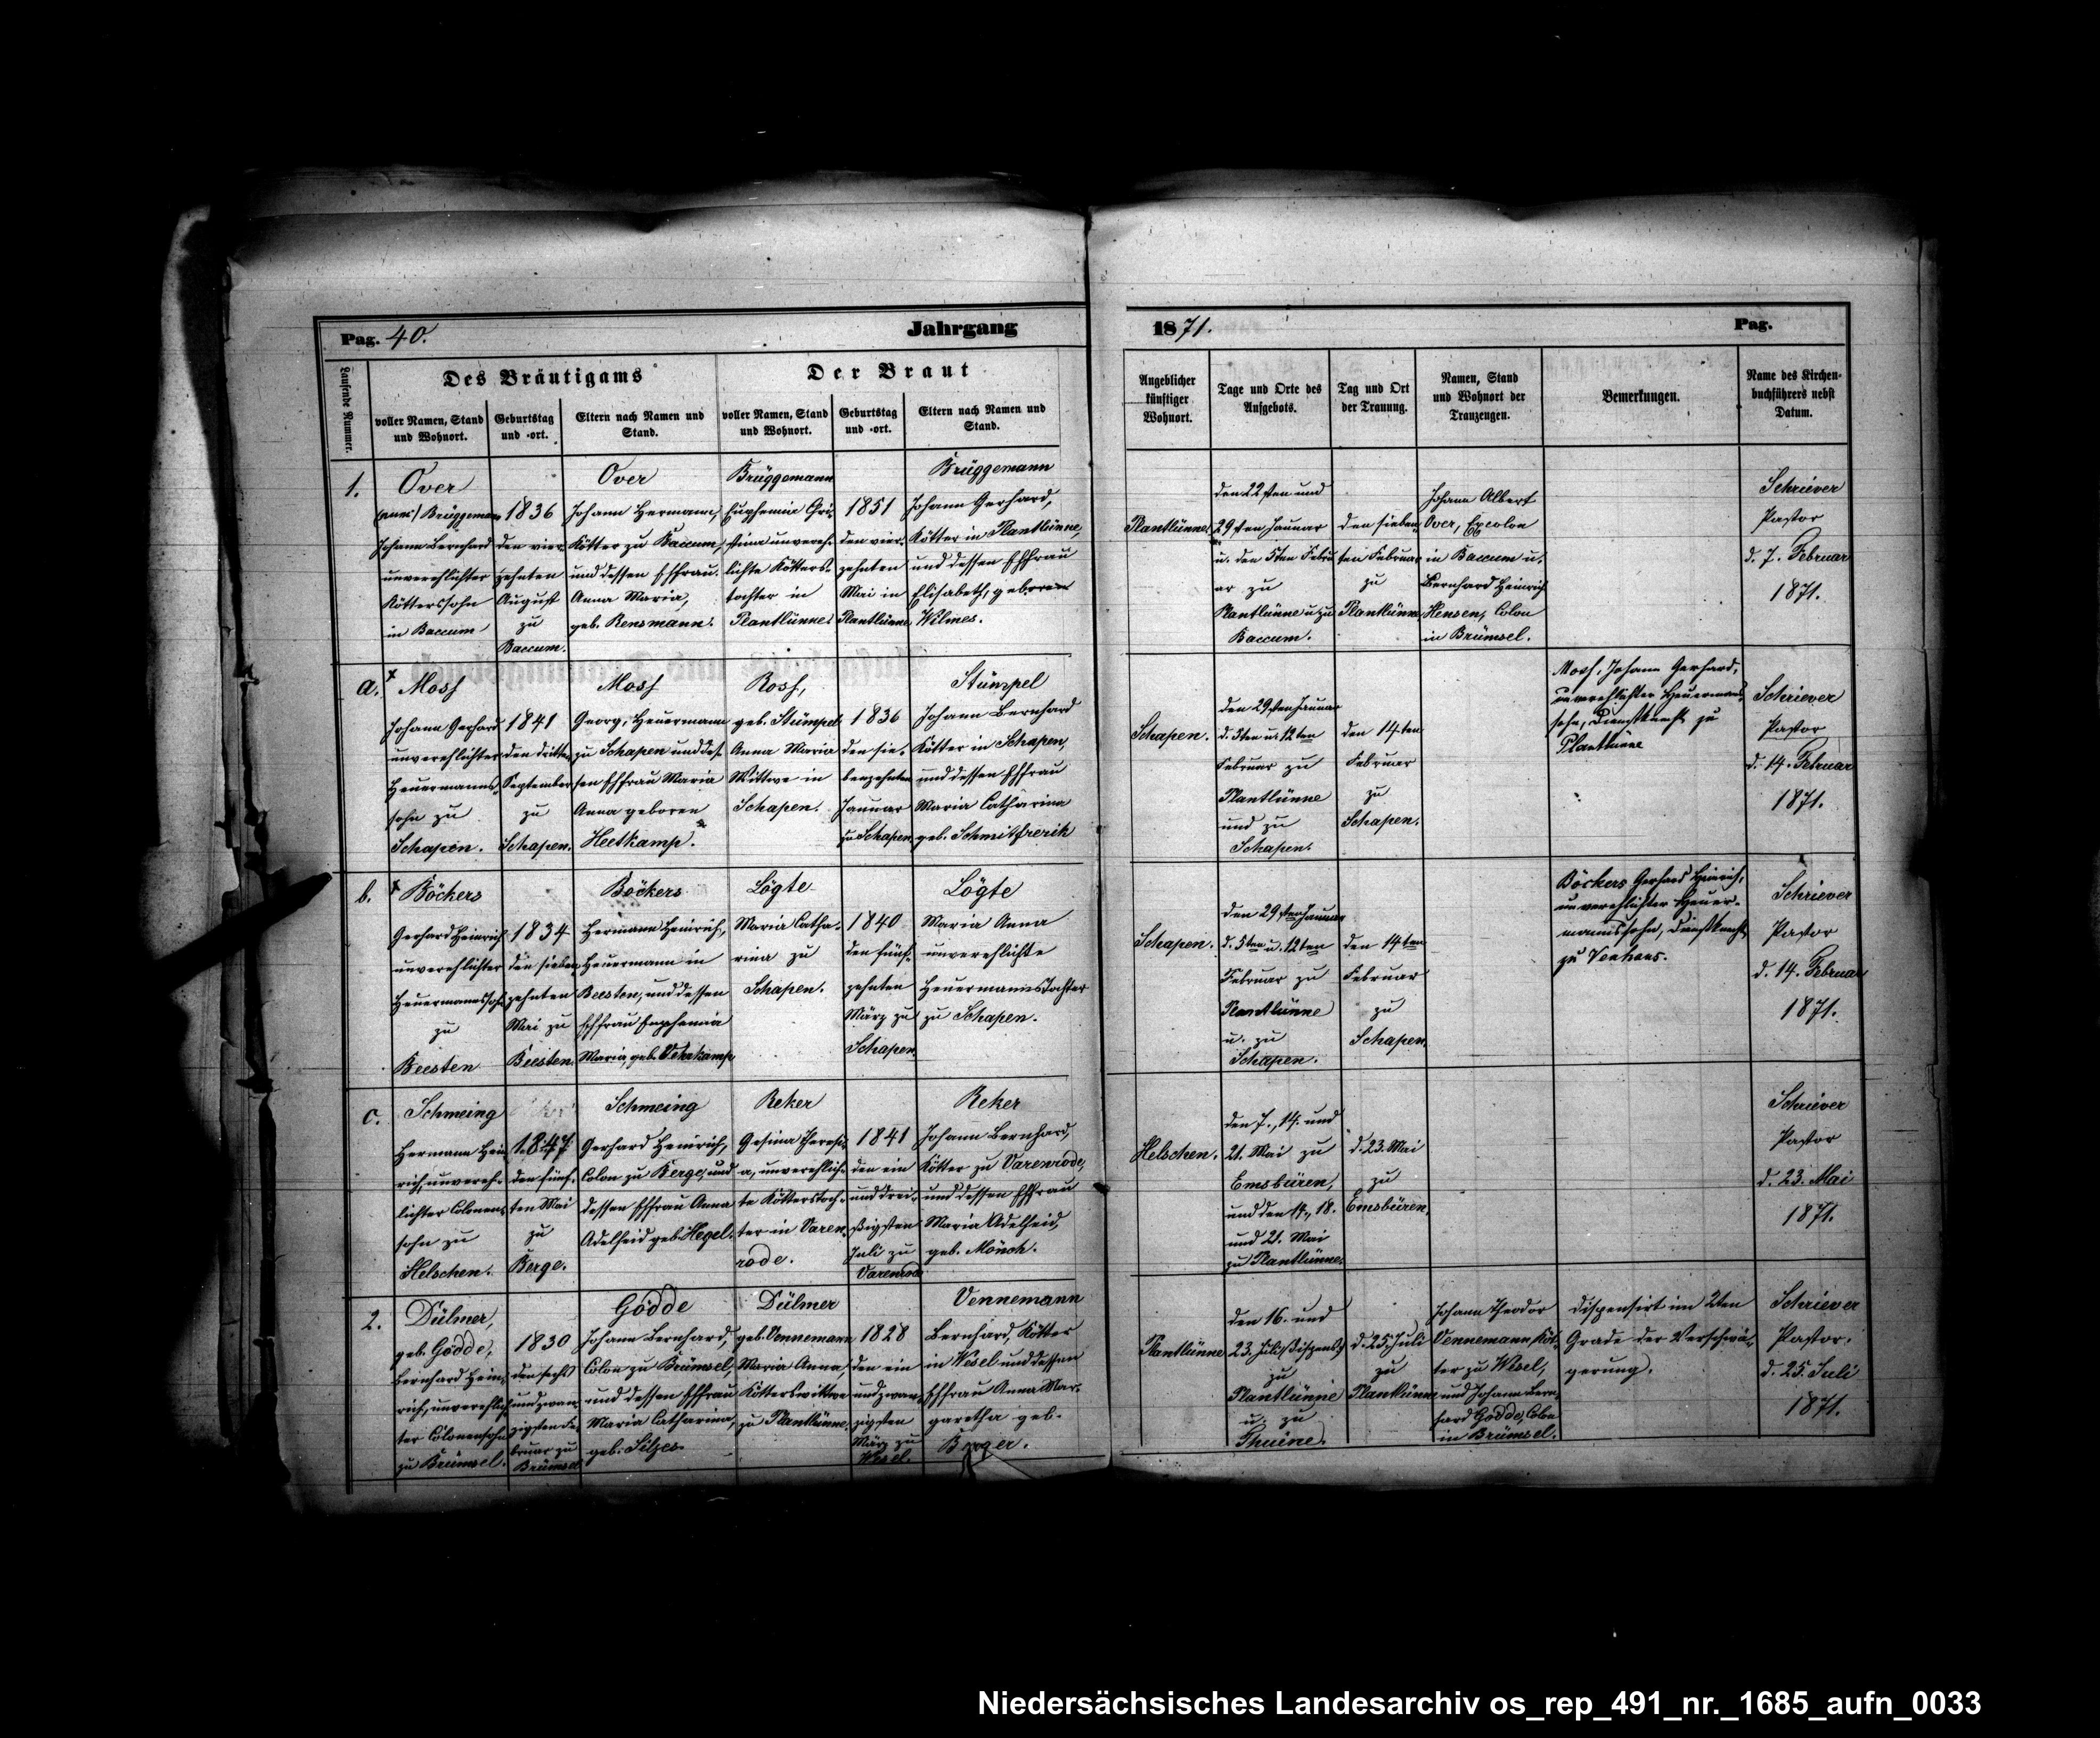 Pag. 40.
Jahrgang
1871.
Pag.
Laufende Nummer.
Des Bräutigams
voller Namen, Stand
und Wohnort.
Geburtstag
und -ort.
Eltern nach Namen und
Stand.
Der Braut
voller Namen, Stand
und Wohnort.
Geburtstag
und -ort.
Eltern nach Namen und
Stand.
Angeblicher
künftiger
Wohnort.
Tage und Orte des
Aufgebots.
Tag und Ort
der Trauung.
Namen, Stand
und Wohnort der
Trauzeugen.
Bemerkungen.
Name des Kirchen-
buchführers nebst
Datum.
1.
Over
Brüggemann
Johann Bernhard
unverehlichter
Kötterssohn
in Baccum
1836
den vier-
zehnten
August
zu
Baccum.
Over
Johann Hermann,
Kötter zu Baccum,
und dessen Ehfrau
Anna Maria,
geb. Rensmann.
Brüggemann
Euphemia Chri-
stina unvereh-
lichte Kötters-
tochter in
Plantlünne.
1851
den vier-
zehnten
Mai in
Plantlünne
Brüggemann
Johann Gerhard,
Kötter in Plantlünne,
und dessen Ehfrau
Elisabeth, geboren
Wilmes.
Plantlünne.
den 22sten und
29sten Januar
u. den 5ten Febru
ar zu
Plantlünne u zu
Baccum.
den sieben
ten Februar
zu
Plantlünne
Johann Albert
Over, Excolon
in Baccum u.
Bernhard Heinrich
Hensen, Colon
in Brümsel.
Schriever
Pastor
d. 7. Februar
1871.
a.
Moss
Johann Gerhard
unverehlichter
Heuermanns-
sohn zu
Schapen.
1841
den dritten
September
zu
Schapen.
Moss
Georg, Heuermann
zu Schapen und des-
sen Ehfrau Maria
Anna geboren
Heetkamp.
Ross,
geb. Stümpel
Anna Maria
Wittwe in
Schapen.
1836
den sie-
benzehnten
Januar
zu Schapen
Stümpel
Johann Bernhard
Kötter in Schapen,
und dessen Ehfrau
Maria Catharina
geb. Schmitfrerik
Schapen.
den 29sten Januar
d. 5ten u. 12ten
Februar zu
Plantlünne
und zu
Schapen.
den 14ten
Februar
zu
Schapen.
Moss, Johann Gerhard,
unverehlichter Heuermanns-
sohn, Dienstknecht zu
Plantlünne
Schriever
Pastor
d. 14. Februar
1871.
b.
Böckers
Gerhard Heinrich
unverehlichter
Heuermannssohn
zu
Beesten
1834
den sieben
zehnten
Mai zu
Beesten.
Böckers
Hermann Heinrich,
Heuermann in
Beesten, und dessen
Ehfrau Euphemia
Maria geb.
Lögte
Maria Catha-
rina zu
Schapen.
1840
den fünf-
zehnten
März zu
Schapen.
Lögte
Maria Anna
unverehlichte
Heuermannstochter
zu Schapen.
Schapen.
den 29sten Januar
d. 5ten u. 12ten
Februar zu
Plantlünne
u. zu
Schapen.
den 14ten
Februar
zu
Schapen.
Böckers Gerhard Heinrich,
unverehlichter Heuer-
mannssohn, Dienstknecht
zu Venhaus.
Schriever
Pastor
d. 14. Februar
1871.
c.
Schmeing
Hermann Hein
rich, unvereh-
lichter Colonen-
sohn zu
Helschen.
1847
den fünf-
ten Mai
zu
Berge.
Schmeing
Gerhard Heinrich,
Colon zu Berge, und
dessen Ehfrau Anna
Adelheid geb. Hegel.
Reker
Gesina Theresi-
a, unverehlich-
te Kötterstoch-
ter in Varen-
rode.
1841
den ein
und drei-
ßigsten
Juli zu
Varenrode
Reker
Johann Bernhard,
Kötter zu Varenrode,
und dessen Ehfrau
Maria Adelheid,
geb. Mönch.
Helschen.
den 7., 14. und
21. Mai zu
Emsbüren,
und den 14., 18.
und 21. Mai
zu Plantlünne.
d. 23. Mai
zu
Emsbüren.
Schriever
Pastor
d. 23. Mai
1871.
2.
Dülmer,
geb. Gödde,
Bernhard Hein-
rich, unverehlich-
ter Colonensohn
zu Brümsel.
1830
den sechs
und zwan-
zigsten Fe-
bruar zu
Brümsel
Gödde
Johann Bernhard,
Colon zu Brümsel,
und dessen Ehfrau
Maria Catharina,
geb. Silges.
Dülmer
geb. Vennemann
Maria Anna,
Kötterswittwe
zu Plantlünne.
1828
den ein
und zwan-
zigsten
März zu
Wesel.
Vennemann
Bernhard, Kötter
in Wesel und dessen
Ehfrau Anna Mar-
garetha geb.
Berger.
Plantlünne
den 16. und
23. Juli
zu
Plantlünne
u. zu
Thuine.
d. 25. Juli
zu
Plantlünne
Johann Theodor
Vennemann Köt-
ter zu Wesel,
und Johann Bern-
hard Gödde, Colon
in Brümsel.
dispensirt im 2ten
Grade der Verschwä-
gerung.
Schriever
Pastor.
d. 25. Juli
1871.
Niedersächsisches Landesarchiv os_rep_491_nr._1685_aufn_0033